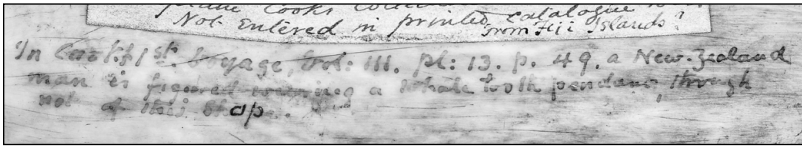 Cooks
Not Entered in printed catalogue
from Fiji Islands?
In Cook's 1st. Voyage, Vol: III. pl: 13. p. 49. a New-Zealand
man is figured wearing a whale tooth pendant, though
not of this shape.